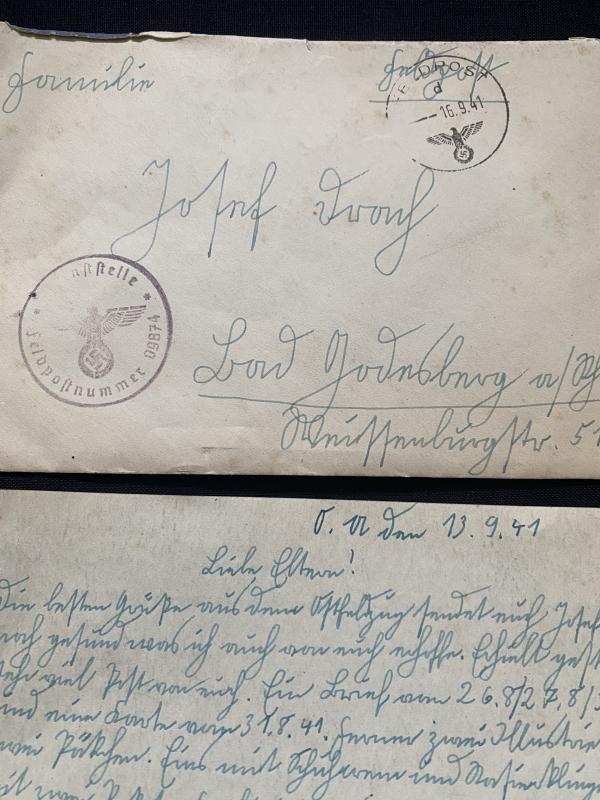 Familie
Feldpost
FELDPOST
d
16.9.41
Josef Drach
nststelle
* Feldpostnummer 09874 *
Bad Godesberg a/
Weissenburgstr. 51
O. U den 13.9.41
Liebe Eltern!
Die besten Grüße aus dem Ostfeldzug sendet euch Josef
noch gesund was ich auch von euch erhoffe. Erhielt gest
sehr viel Post von euch. Ein Brief vom 26.8/27.8/3
und eine Karte vom 31.8.41. Ferner zwei Illustrie
zwei Päkchen. Eins mit Schuhcrem und Rasierklinge
mit zwei